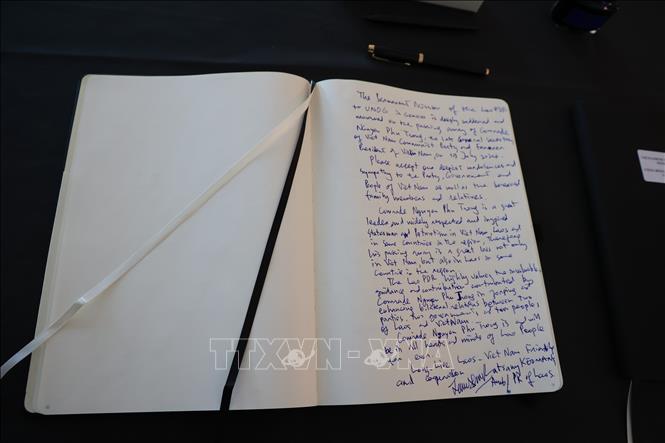 The Permanent Mission of the Lao PDR
to UNOG in Geneva is deeply saddened and
mourned on the passing away of Comrade
Nguyen Phu Trong, the late General Secretary
of Viet Nam Communist Party and former
President of Viet Nam, on 19 July 2024.
Please accept our deepest condolences and
sympathy to the Party, Government and
People of Viet Nam as well as the bereaved
family members and relatives.
Comrade Nguyen Phu Trong is a great
leader and widely respected and
statesman and in Viet Nam, Laos and
in some countries in the region, therefore
his passing away is a great loss not only
in Viet Nam but also in Laos in some
countries in the region.
The Lao PDR highly values the invaluable
guidance and contribution contributed by
Comrade Nguyen Phu Trong in and
enhancing bilateral relations between two
parties, two governments and two peoples
of Laos and Viet Nam.
Comrade Nguyen Phu Trong is and will
be in all hearts and minds of Lao People
for ever.
Long Live Laos - Viet Nam Friendship
and cooperation
Amb/PR of Laos.
TTXVN - VNA